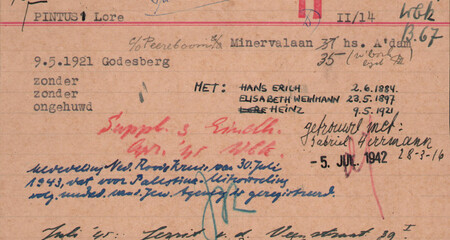 PINTUS Lore
II/14
Wbk
B.67
c/o Peereboom Minervalaan 37 hs. A'dam
35
9.5.1921 Godesberg
zonder
zonder
ongehuwd
MET: HANS ERICH 2.6.1884.
ELISABETH WEHMANN 23.5.1897
LORE HEINZ 9.5.1921
getrouwd met:
Gabriel Herrmann
28-3-16
- 5 JUL 1942
Suppl. 3 Eindh.
Apr. '45 Wbk.
mededeling Ned. Roode Kruis van 30 Juli
1943, dat voor Palestina-uitwisseling
volg. meded. van Jew. Agency is geregistreerd.
Juli '45: Gerrit v. d. Veenstraat 39 I